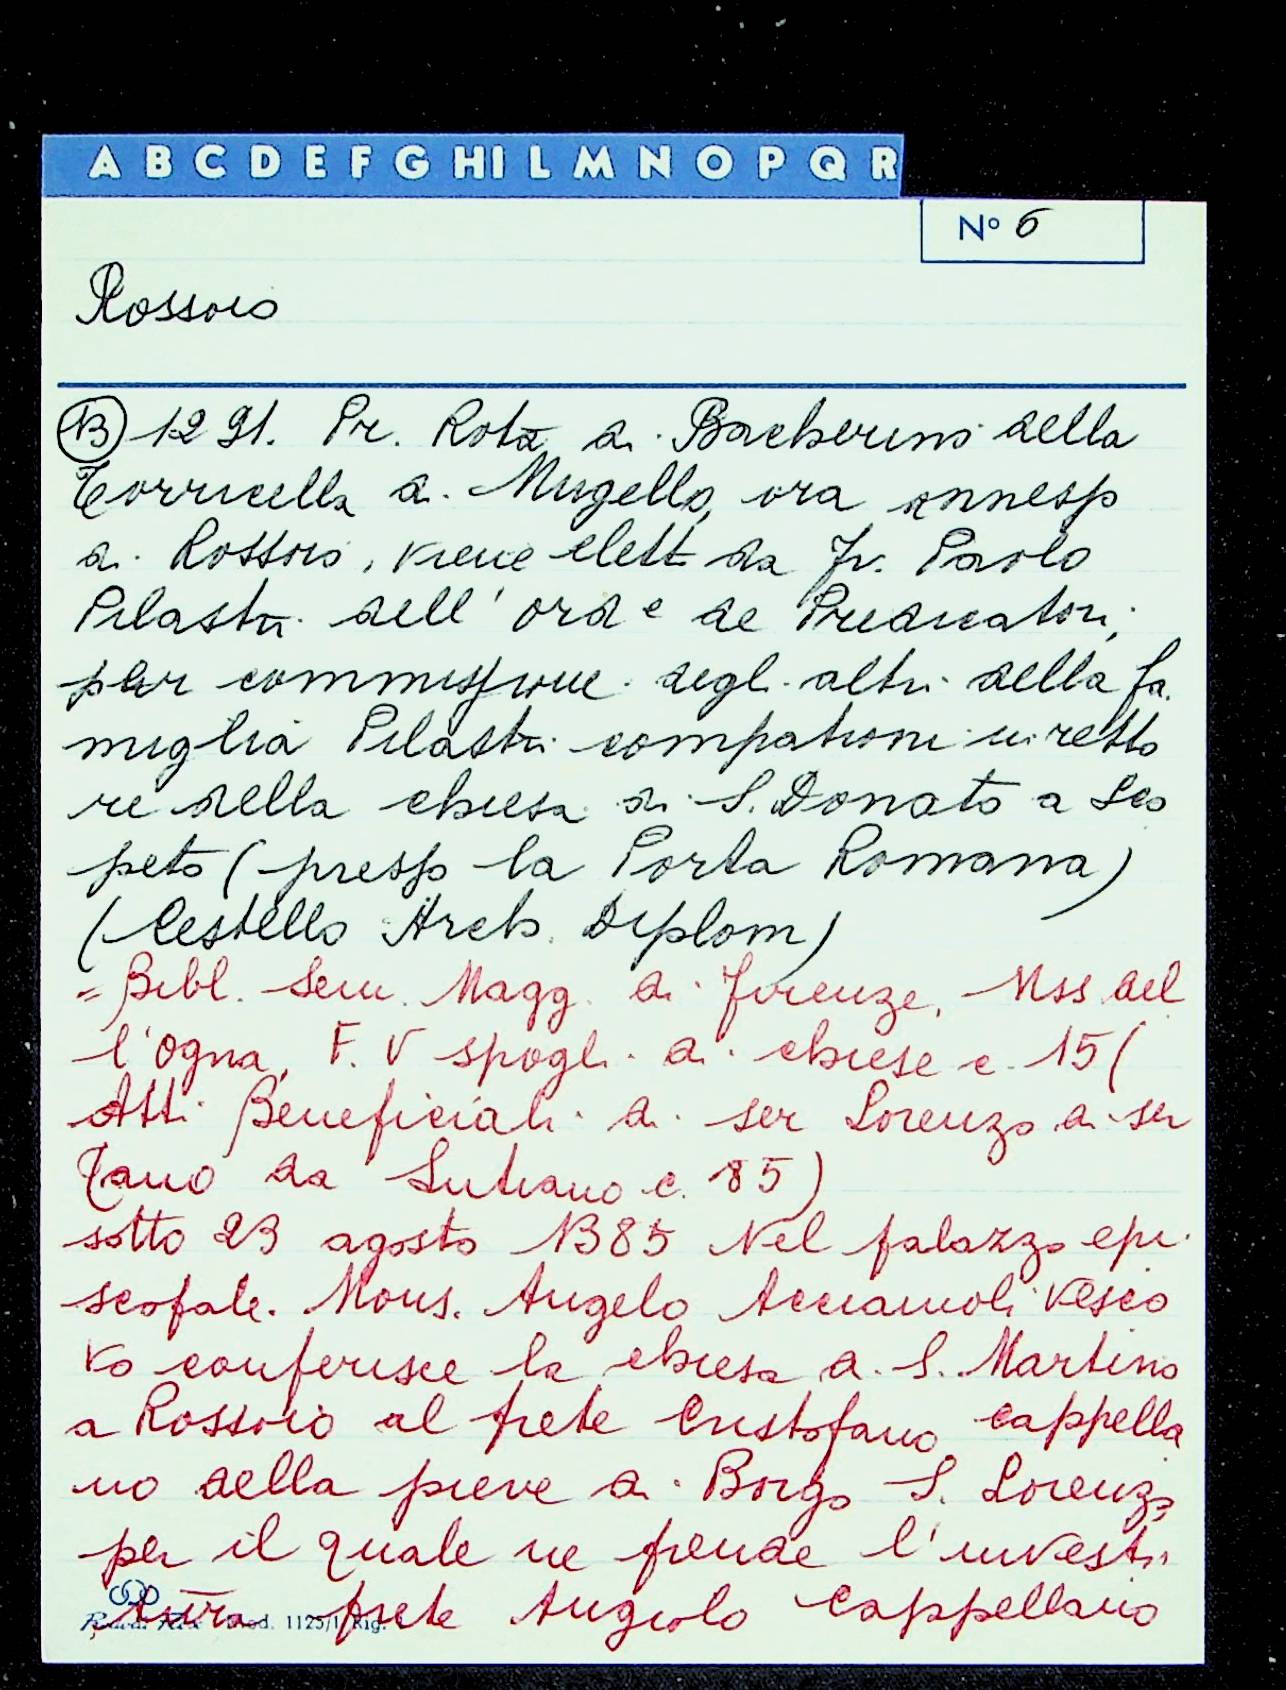 A B C D E F G HI L M N O P Q R
N° 6
Rossoio
(B) 1291. Pr. Rota di Barberino della
Torricella di Mugello, ora annesso
a Rossoio, viene elett da Fr. Paolo
Pilastri dell' ord e de Predicatori,
per commissione degli altri della fa
miglia Pilastri compatroni in retto
re della chiesa di S. Donato a Sco
peto (presso la Porta Romana)
(Cestello Arch. Diplom)
= Bibl. Sem. Magg. di Firenze, Mss del
l'Ogna, F. V spogli di chiese c. 15 (
Atti Beneficiali di ser Lorenzo di ser
Tano da Lutiano c. 85)
sotto 23 agosto 1385 Nel palazzo epi
scopale. Mons. Angelo Acciaiuoli Vesco
vo conferisce la chiesa di S. Martino
a Rossoio al prete Cristofano cappella
no della pieve di Borgo S. Lorenzo
per il quale ne prende l'investi
tura prete Angiolo Cappellano
Mod. 1125/1 Rig.